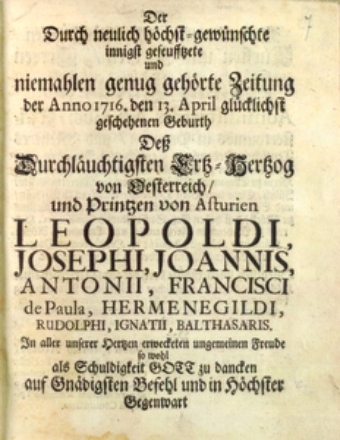 7
Der
Durch neulich höchst-gewünschte
innigst geseufftzete
und
niemahlen genug gehörte Zeitung
der Anno 1716. den 13. April glücklichst
geschehenen Geburth
Deß
Durchläuchtigsten Ertz-Hertzog
von Oesterreich/
und Printzen von Asturien
LEOPOLDI,
JOSEPHI, JOANNIS,
ANTONII, FRANCISCI
de Paula, HERMENEGILDI,
RUDOLPHI, IGNATII, BALTHASARIS.
In aller unserer Hertzen erweckten ungemeinen Freude
so wohl
als Schuldigkeit GOTT zu dancken
auf Gnädigsten Befehl und in Höchster
Gegenwart